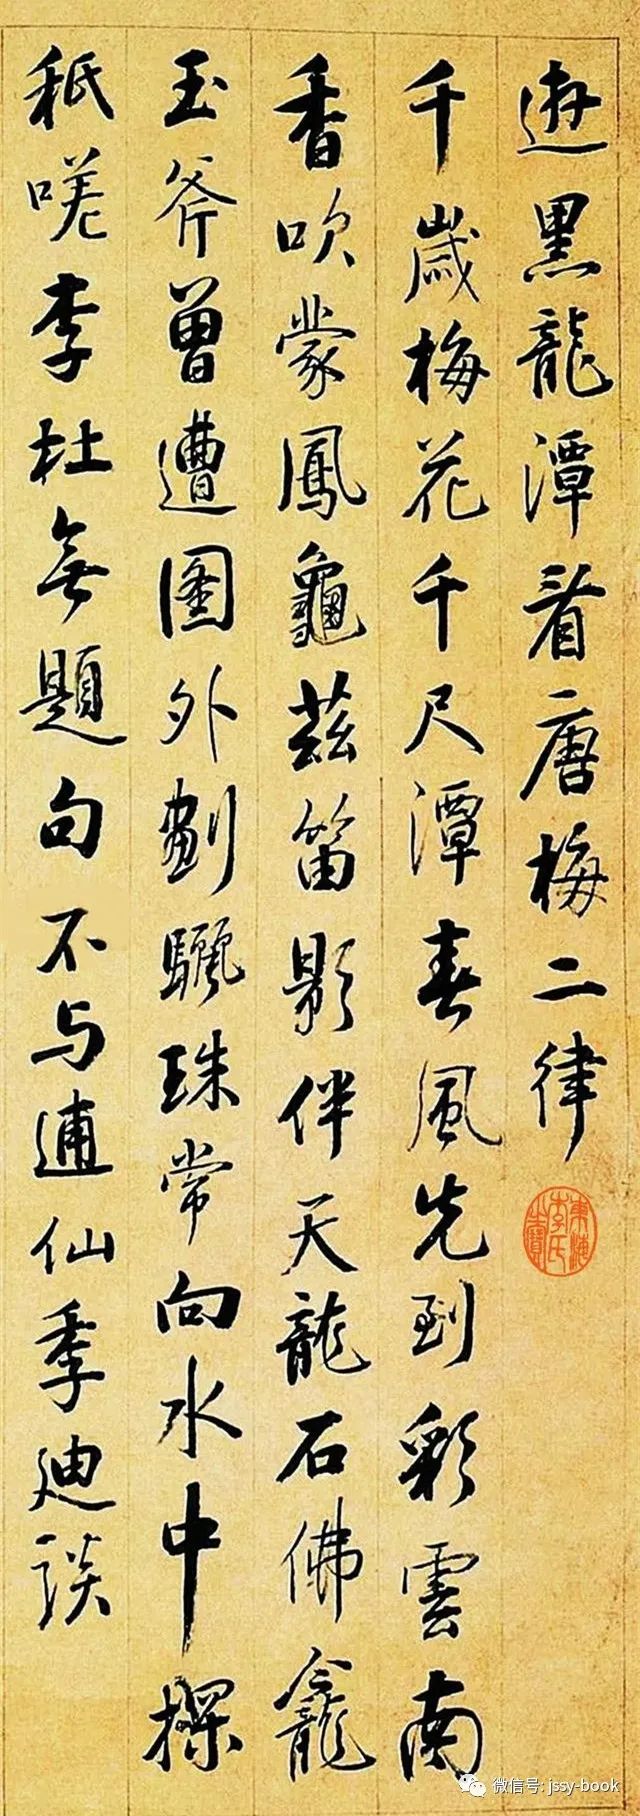 遊黑龍潭看唐梅二律
千歲梅花千尺潭春風先到彩雲南
香吹蒙鳳龜茲笛影伴天龍石佛龕
玉斧曾遭圖外劃驪珠常向水中探
秪嗟李杜無題句不与逋仙季迪談
微信号: jssy-book